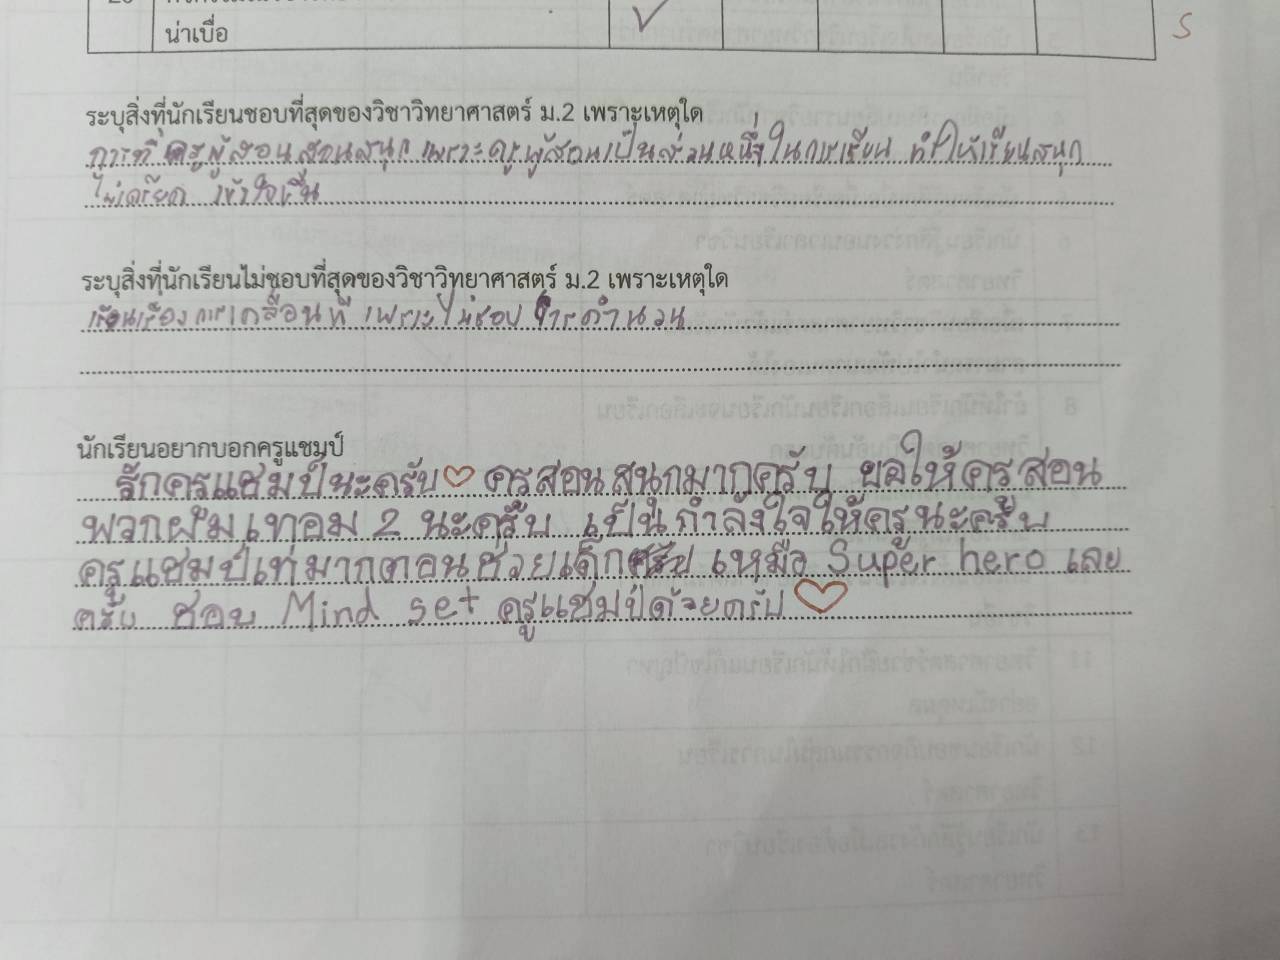 น่าเบื่อ
S
ระบุสิ่งที่นักเรียนชอบที่สุดของวิชาวิทยาศาสตร์ ม.2 เพราะเหตุใด
การที่ ครูผู้สอน สอนสนุก เพราะครูผู้สอนเป็นส่วนหนึ่งในการเรียน ทำให้เรียนสนุก
ไม่เครียด เข้าใจขึ้น
ระบุสิ่งที่นักเรียนไม่ชอบที่สุดของวิชาวิทยาศาสตร์ ม.2 เพราะเหตุใด
เรียนเรื่อง การเคลื่อนที่ เพราะไม่ชอบ การคำนวน
นักเรียนอยากบอกครูแชมป์
รักครูแชมป์นะครับ♡ ครูสอนสนุกมากครับ ขอให้ครูสอน
พวกผมเทอม 2 นะครับ เป็นกำลังใจให้ครูนะครับ
ครูแชมป์เท่มากตอนช่วยเด็กครับ เหมือ Super hero เลย
ครับ ชอบ Mind set ครูแชมป์ด้วยครับ ♡